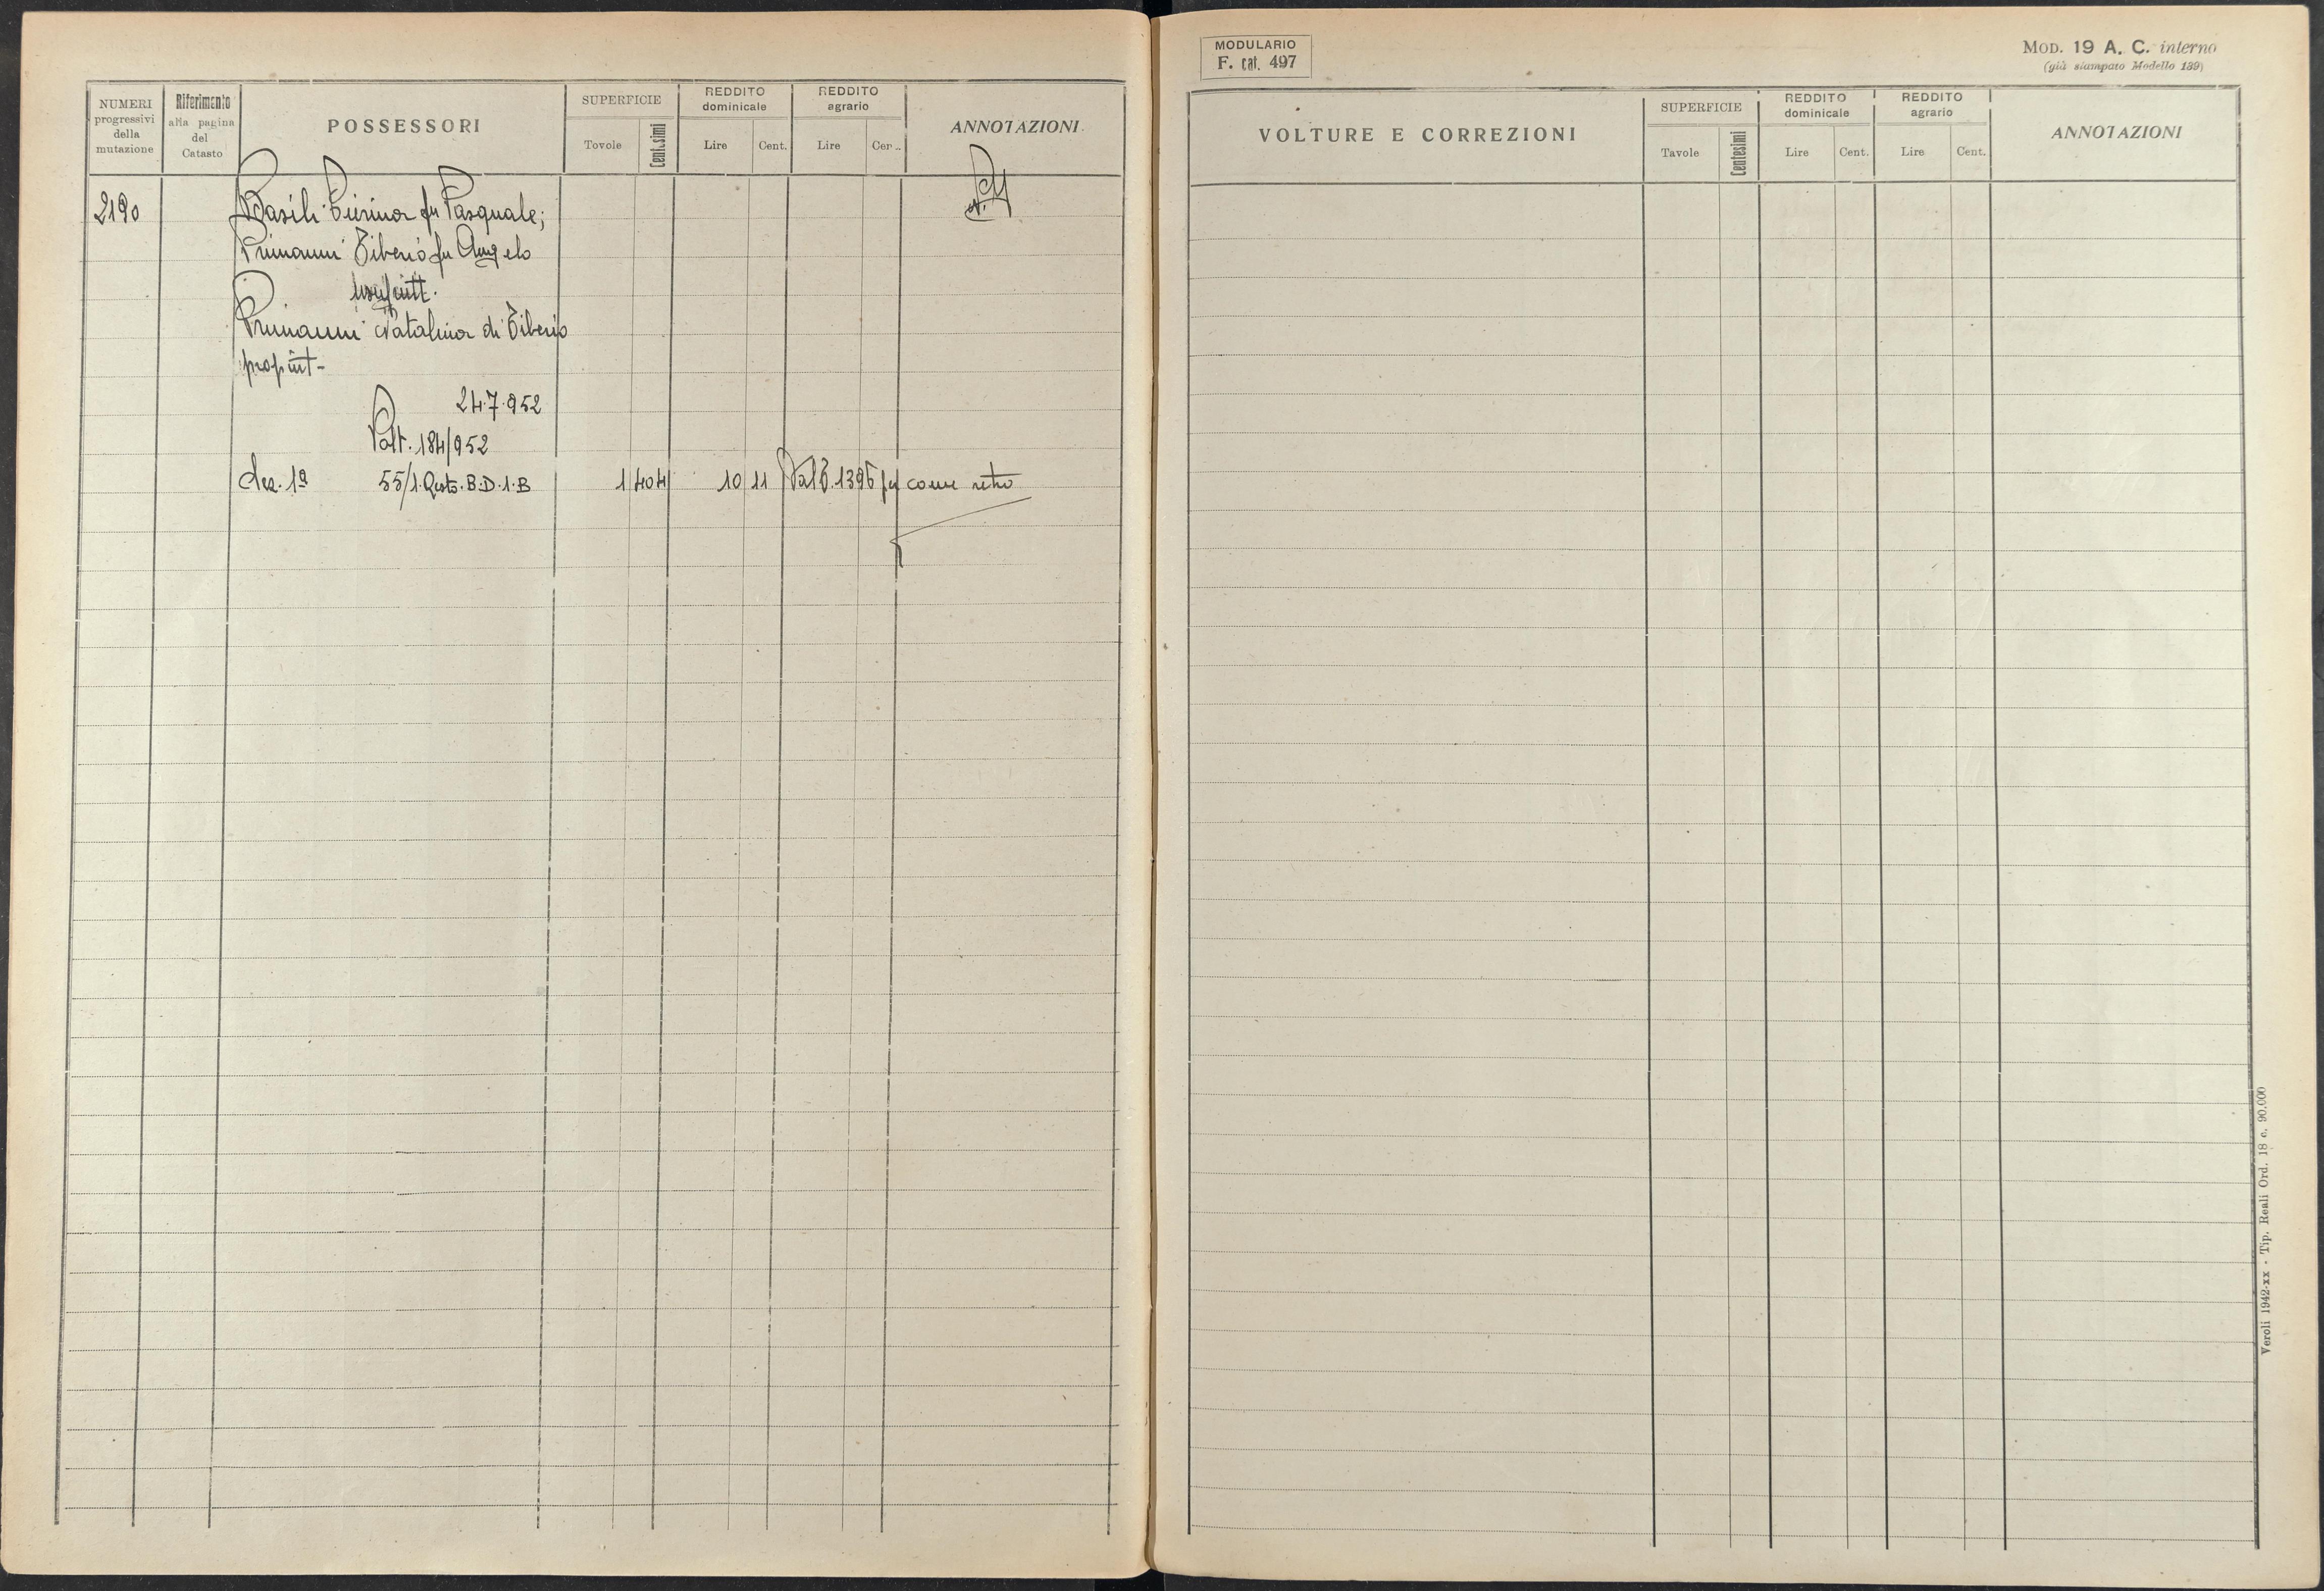 NUMERI
progressivi
della
mutazione
Riferimento
alla pagina
del
Catasto
POSSESSORI
SUPERFICIE
Tavole
Centesimi
REDDITO
dominicale
Lire
Cent.
REDDITO
agrario
Lire
Cent.
ANNOTAZIONI
2190
Basili Pierina fu Pasquale;
Primanni Tiberio fu Angelo
usufrutt.
Primanni Natalina di Tiberio
propriet-
24.7.952
Volt. 184/952
Sez. 1ª 55/1. Qrto. B.D.1.B 1 404 10 11 Val E. 1395 per come retro
MODULARIO
F. cat. 497
MOD. 19 A. C. interno
(già stampato Modello 139)
VOLTURE E CORREZIONI
SUPERFICIE
Tavole
Centesimi
REDDITO
dominicale
Lire
Cent.
REDDITO
agrario
Lire
Cent.
ANNOTAZIONI
Veroli 1942-XX - Tip. Reali Ord. 18 c. 90.000